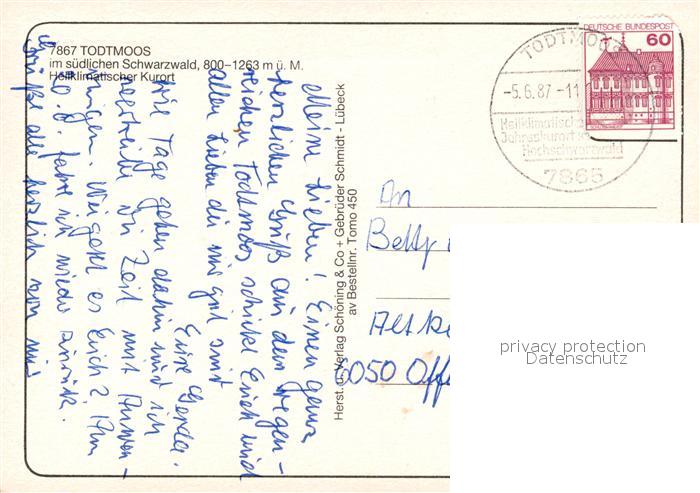 7867 TODTMOOS
im südlichen Schwarzwald, 800–1263 m ü. M.
Heilklimatischer Kurort
DEUTSCHE BUNDESPOST
60
TODTMOOS
-5.6.87-11
Heilklimatisch
Jahreskurort
Hochschwarzwald
7865
Meine Lieben! Einen ganz
herzlichen Gruß aus dem regen-
reichen Todtmoos schickt Euch und
allen Lieben die mir gut sind
Eure Gerda.
Die Tage gehen dahin und ich
Zeit mit Anwen-
dungen. Wie geht es Euch? Am
fahre ich wieder zurück.
Grüße alle herzlich von mir
Herst. u. Verlag Schöning & Co + Gebrüder Schmidt - Lübeck
av Bestellnr. Tomo 450
An
Betty
6050 Offe
privacy protection
Datenschutz